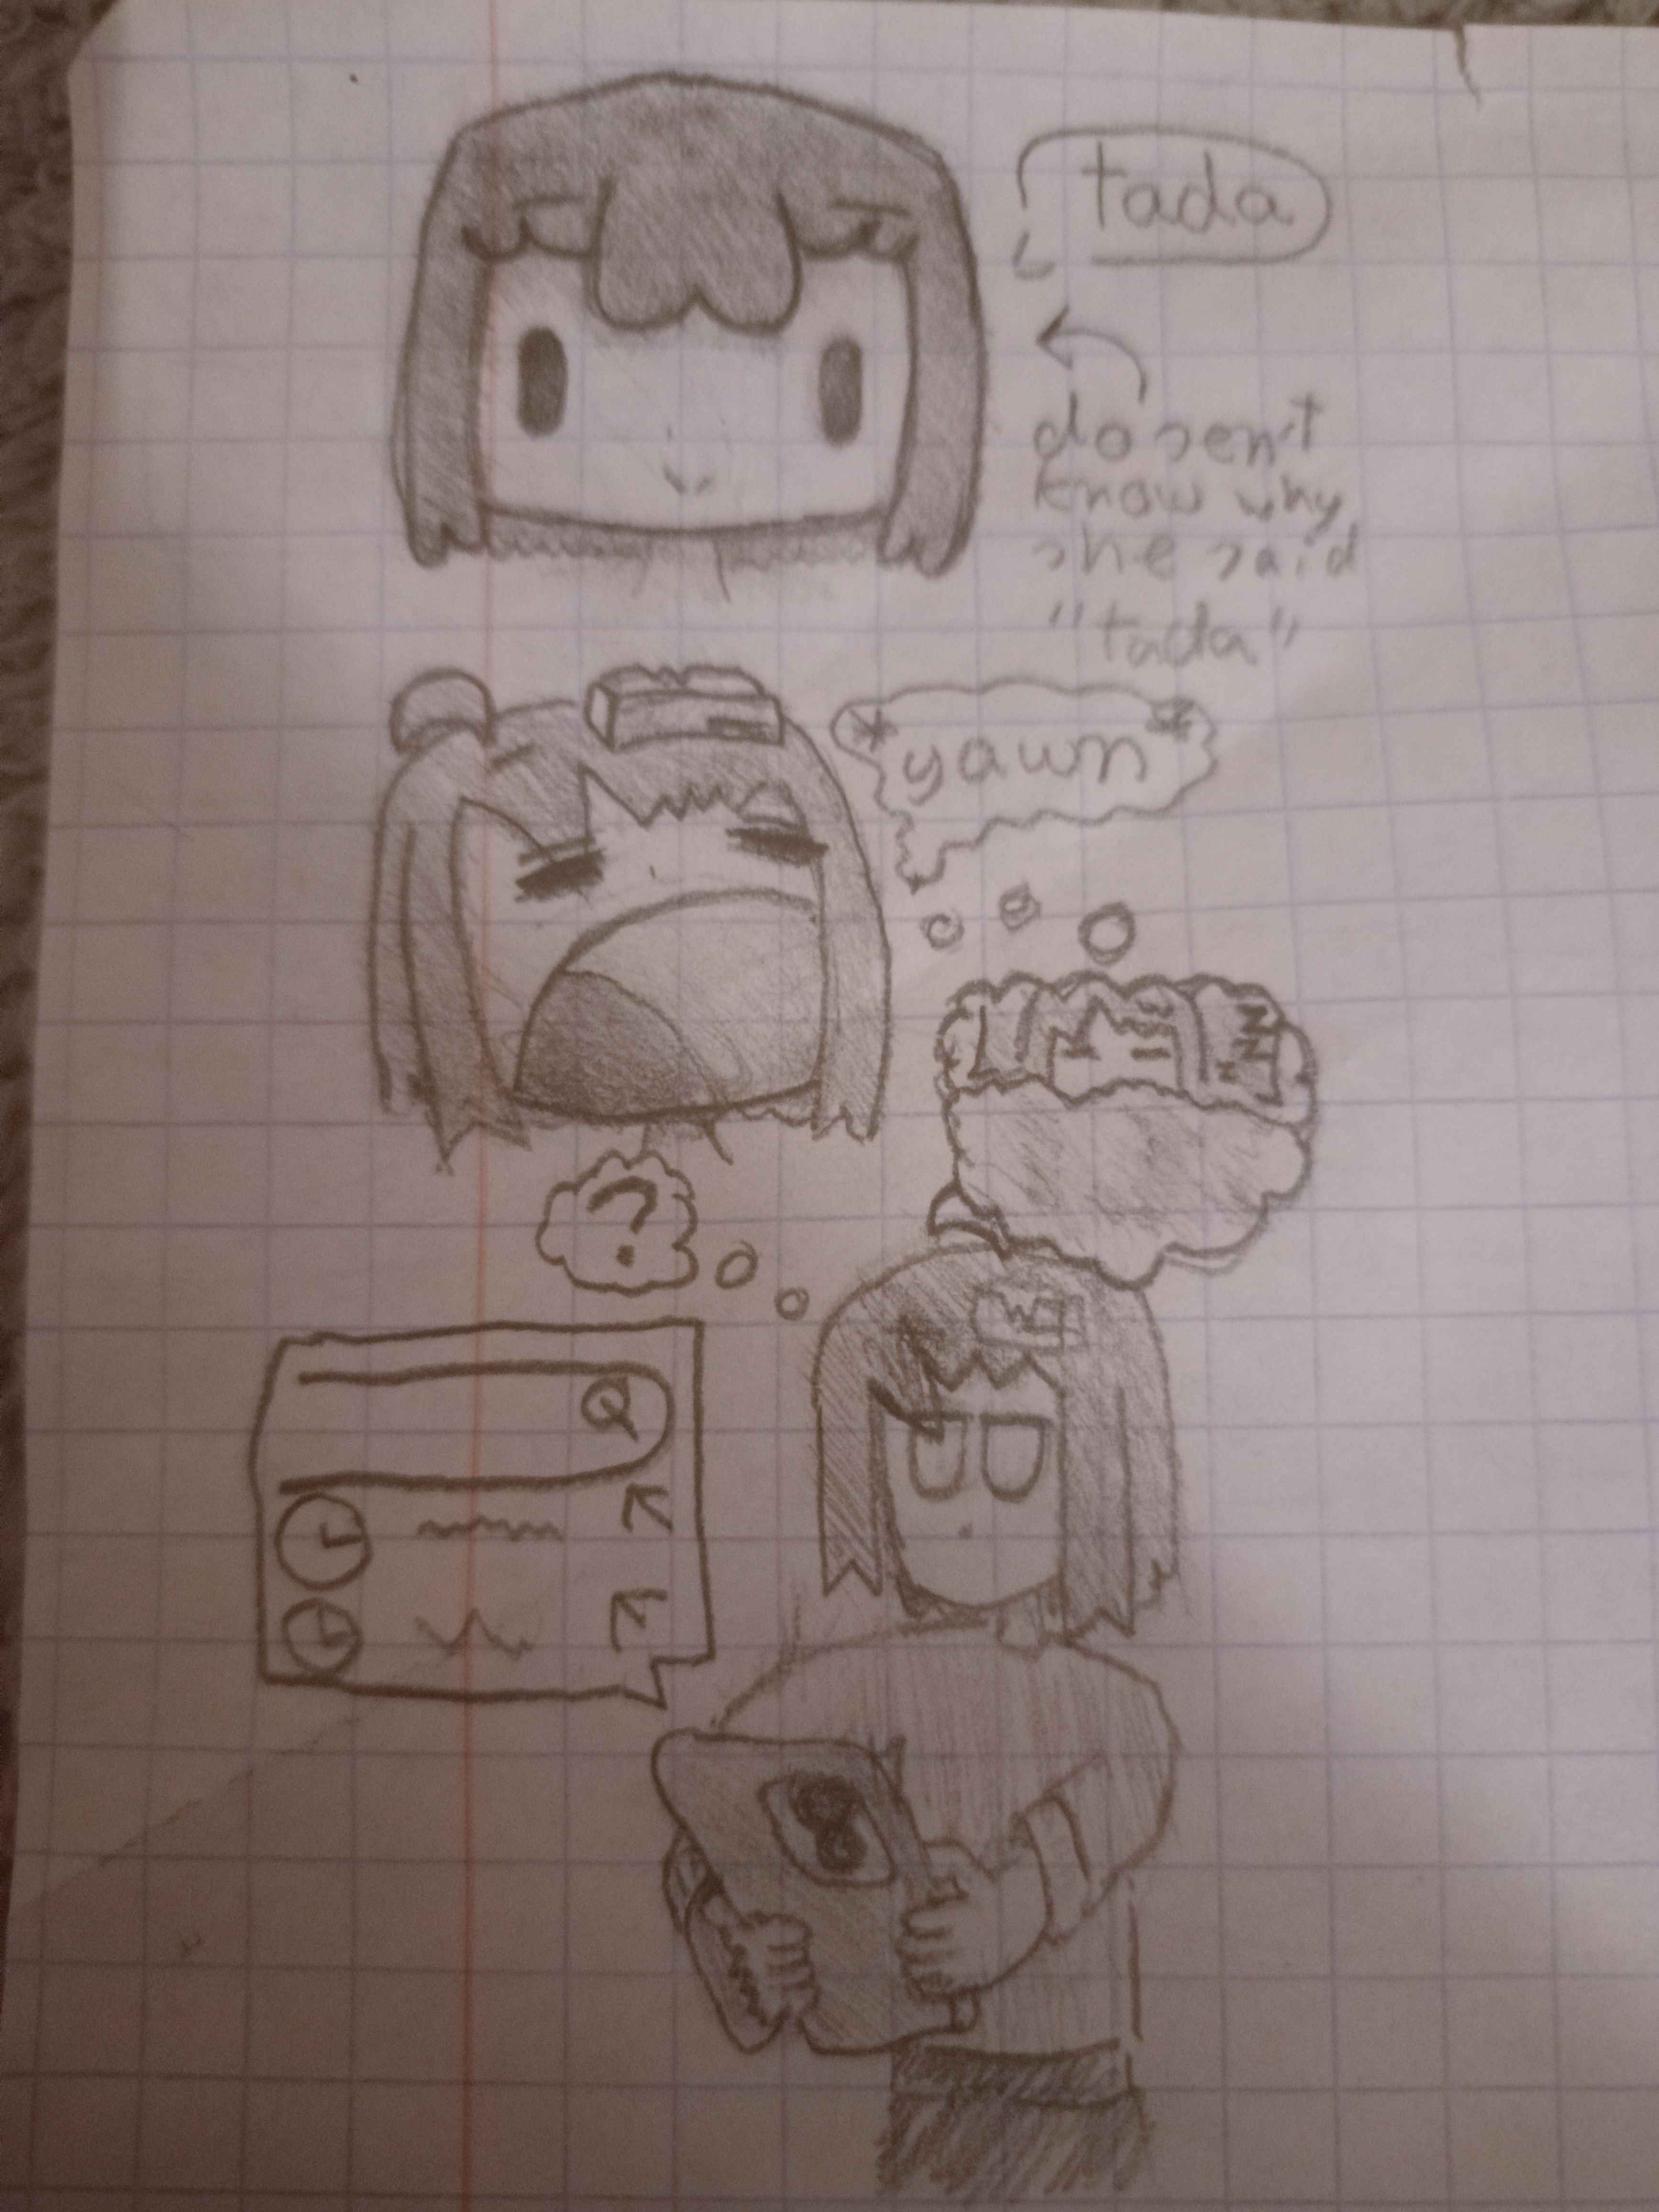 tada
dosen't
know why
she said
"tada"
*yawn*
?